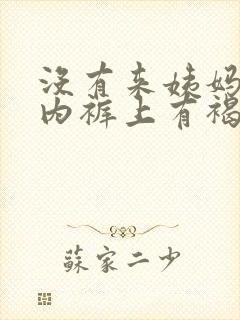 没有来姨妈
内裤上有褐
蘇家二少